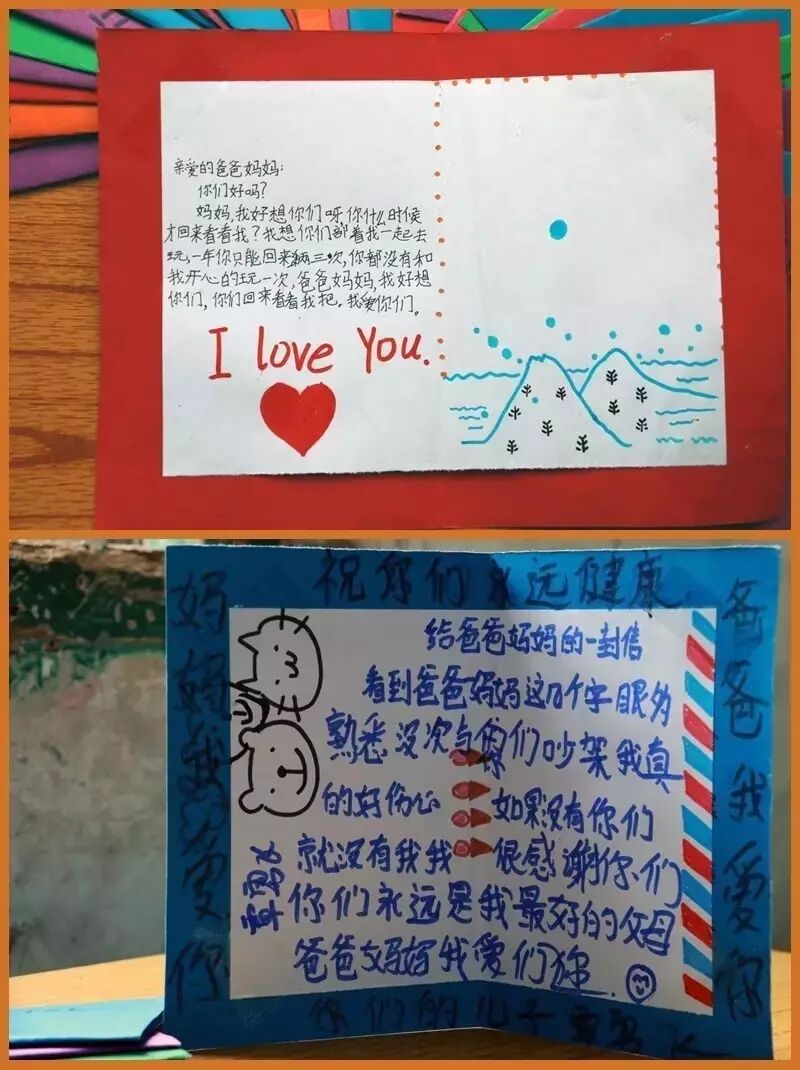 亲爱的爸爸妈妈:
你们好吗?
妈妈,我好想你们呀,你什么时候
才回来看看我?我想你们部着我一起去
玩,一年你只能回来两三次,你都没有和
我开心的玩一次,爸爸妈妈,我好想
你们,你们回来看看我把。我爱你们。
I love You.
祝你们永远健康.
妈妈我爱你
给爸爸妈妈的一封信
看到爸爸妈妈这几个字眼多
熟悉没次与你们吵架我真
的好伤心 如果没有你们
就没有我我 很感谢你们
你们永远是我最好的父母
爸爸妈妈我爱们你
爸爸我爱你
你们的儿子